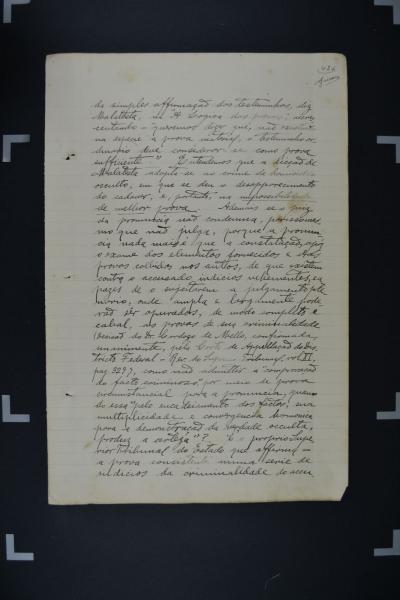 424
da simples affirmação das testemunhas, diz
Malatesta, in "A Logica das provas": accres
centando - queremos dizer que, não
na especie a prova material, o testemunho or
dinario deve considerar-se como prova
sufficiente". Entendemos que a licção de
Malatesta adapta-se ao crime de homicidio
occulto, em que se deu o desapparecimento
do cadaver, e, portanto, na impossibilidade
de melhor prova. Ademais se o juiz
da pronuncia não condemna, por isso mes
mo que não julga, porque a pronun
cia nada mais é que a constatação, após
o exame dos elementos fornecidos e das
provas colhidas nos autos, de que existem
contra o accusado indicios vehementes, ca
pazes de o sujeitarem a julgamento ple
nario, onde ampla e largamente pode
rão ser apuradas, de modo completo e
cabal, as provas de sua criminalidade
(Decisão do Dr. Cardoso de Mello, confirmada
unanimemente, pela Corte de Appellação do Dis
tricto Federal - Rev. do Supr. Tribunal, vol.
pag. 329), como não admittir a "comprovação
do facto criminoso", por meio de prova
circumstancial para a pronuncia, quan
do essa "pelo encadeamento dos factos, sua
multiplicidade e convergencia harmonica
para a demonstração da verdade occulta,
produz a certeza"? E o proprio Supe
rior Tribunal do Estado que affirma -
a prova consistente numa serie de
indicios da criminalidade do accu